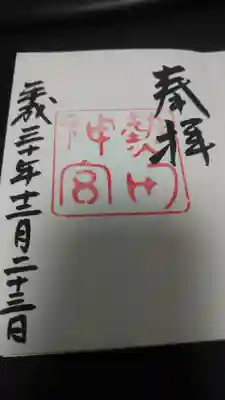 奉拝
熱田
神宮
平成三十年十二月二十三日